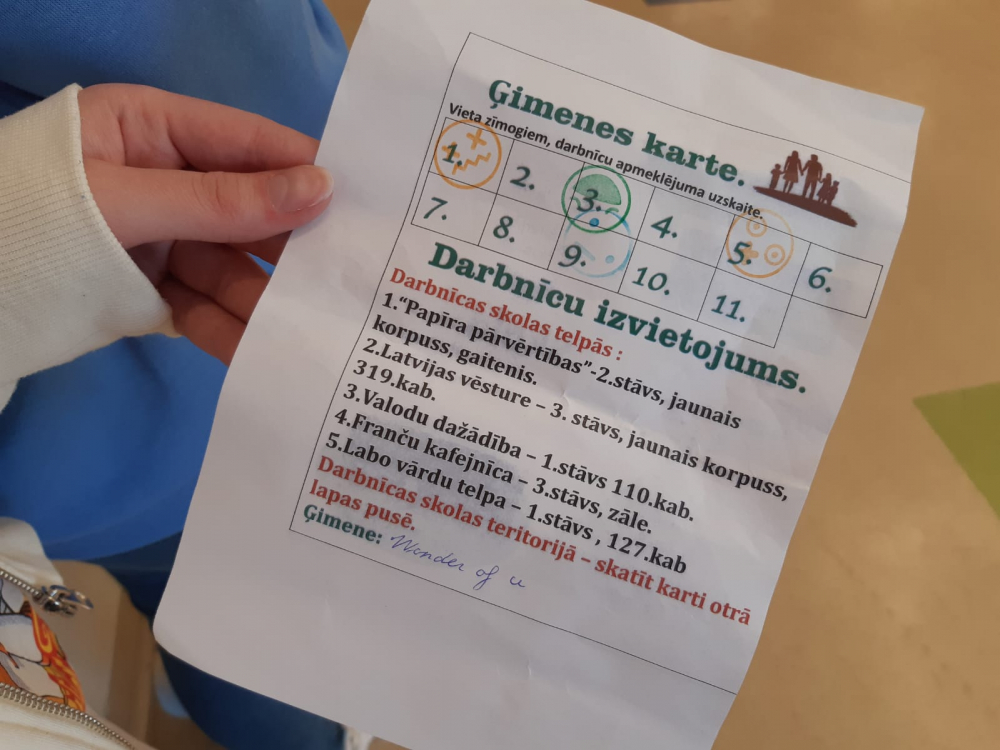 Ģimenes karte.
Vieta zīmogiem, darbnīcu apmeklējuma uzskaite.
1. 2. 3. 4. 5. 6.
7. 8. 9. 10. 11.
Darbnīcu izvietojums.
Darbnīcas skolas telpās :
1.“Papīra pārvērtības”-2.stāvs, jaunais
korpuss, gaitenis.
2.Latvijas vēsture – 3. stāvs, jaunais korpuss,
319.kab.
3.Valodu dažādība – 1.stāvs 110.kab.
4.Franču kafejnīca – 3.stāvs, zāle.
5.Labo vārdu telpa – 1.stāvs , 127.kab
Darbnīcas skolas teritorijā – skatīt karti otrā
lapas pusē.
Ģimene: Wonder of u